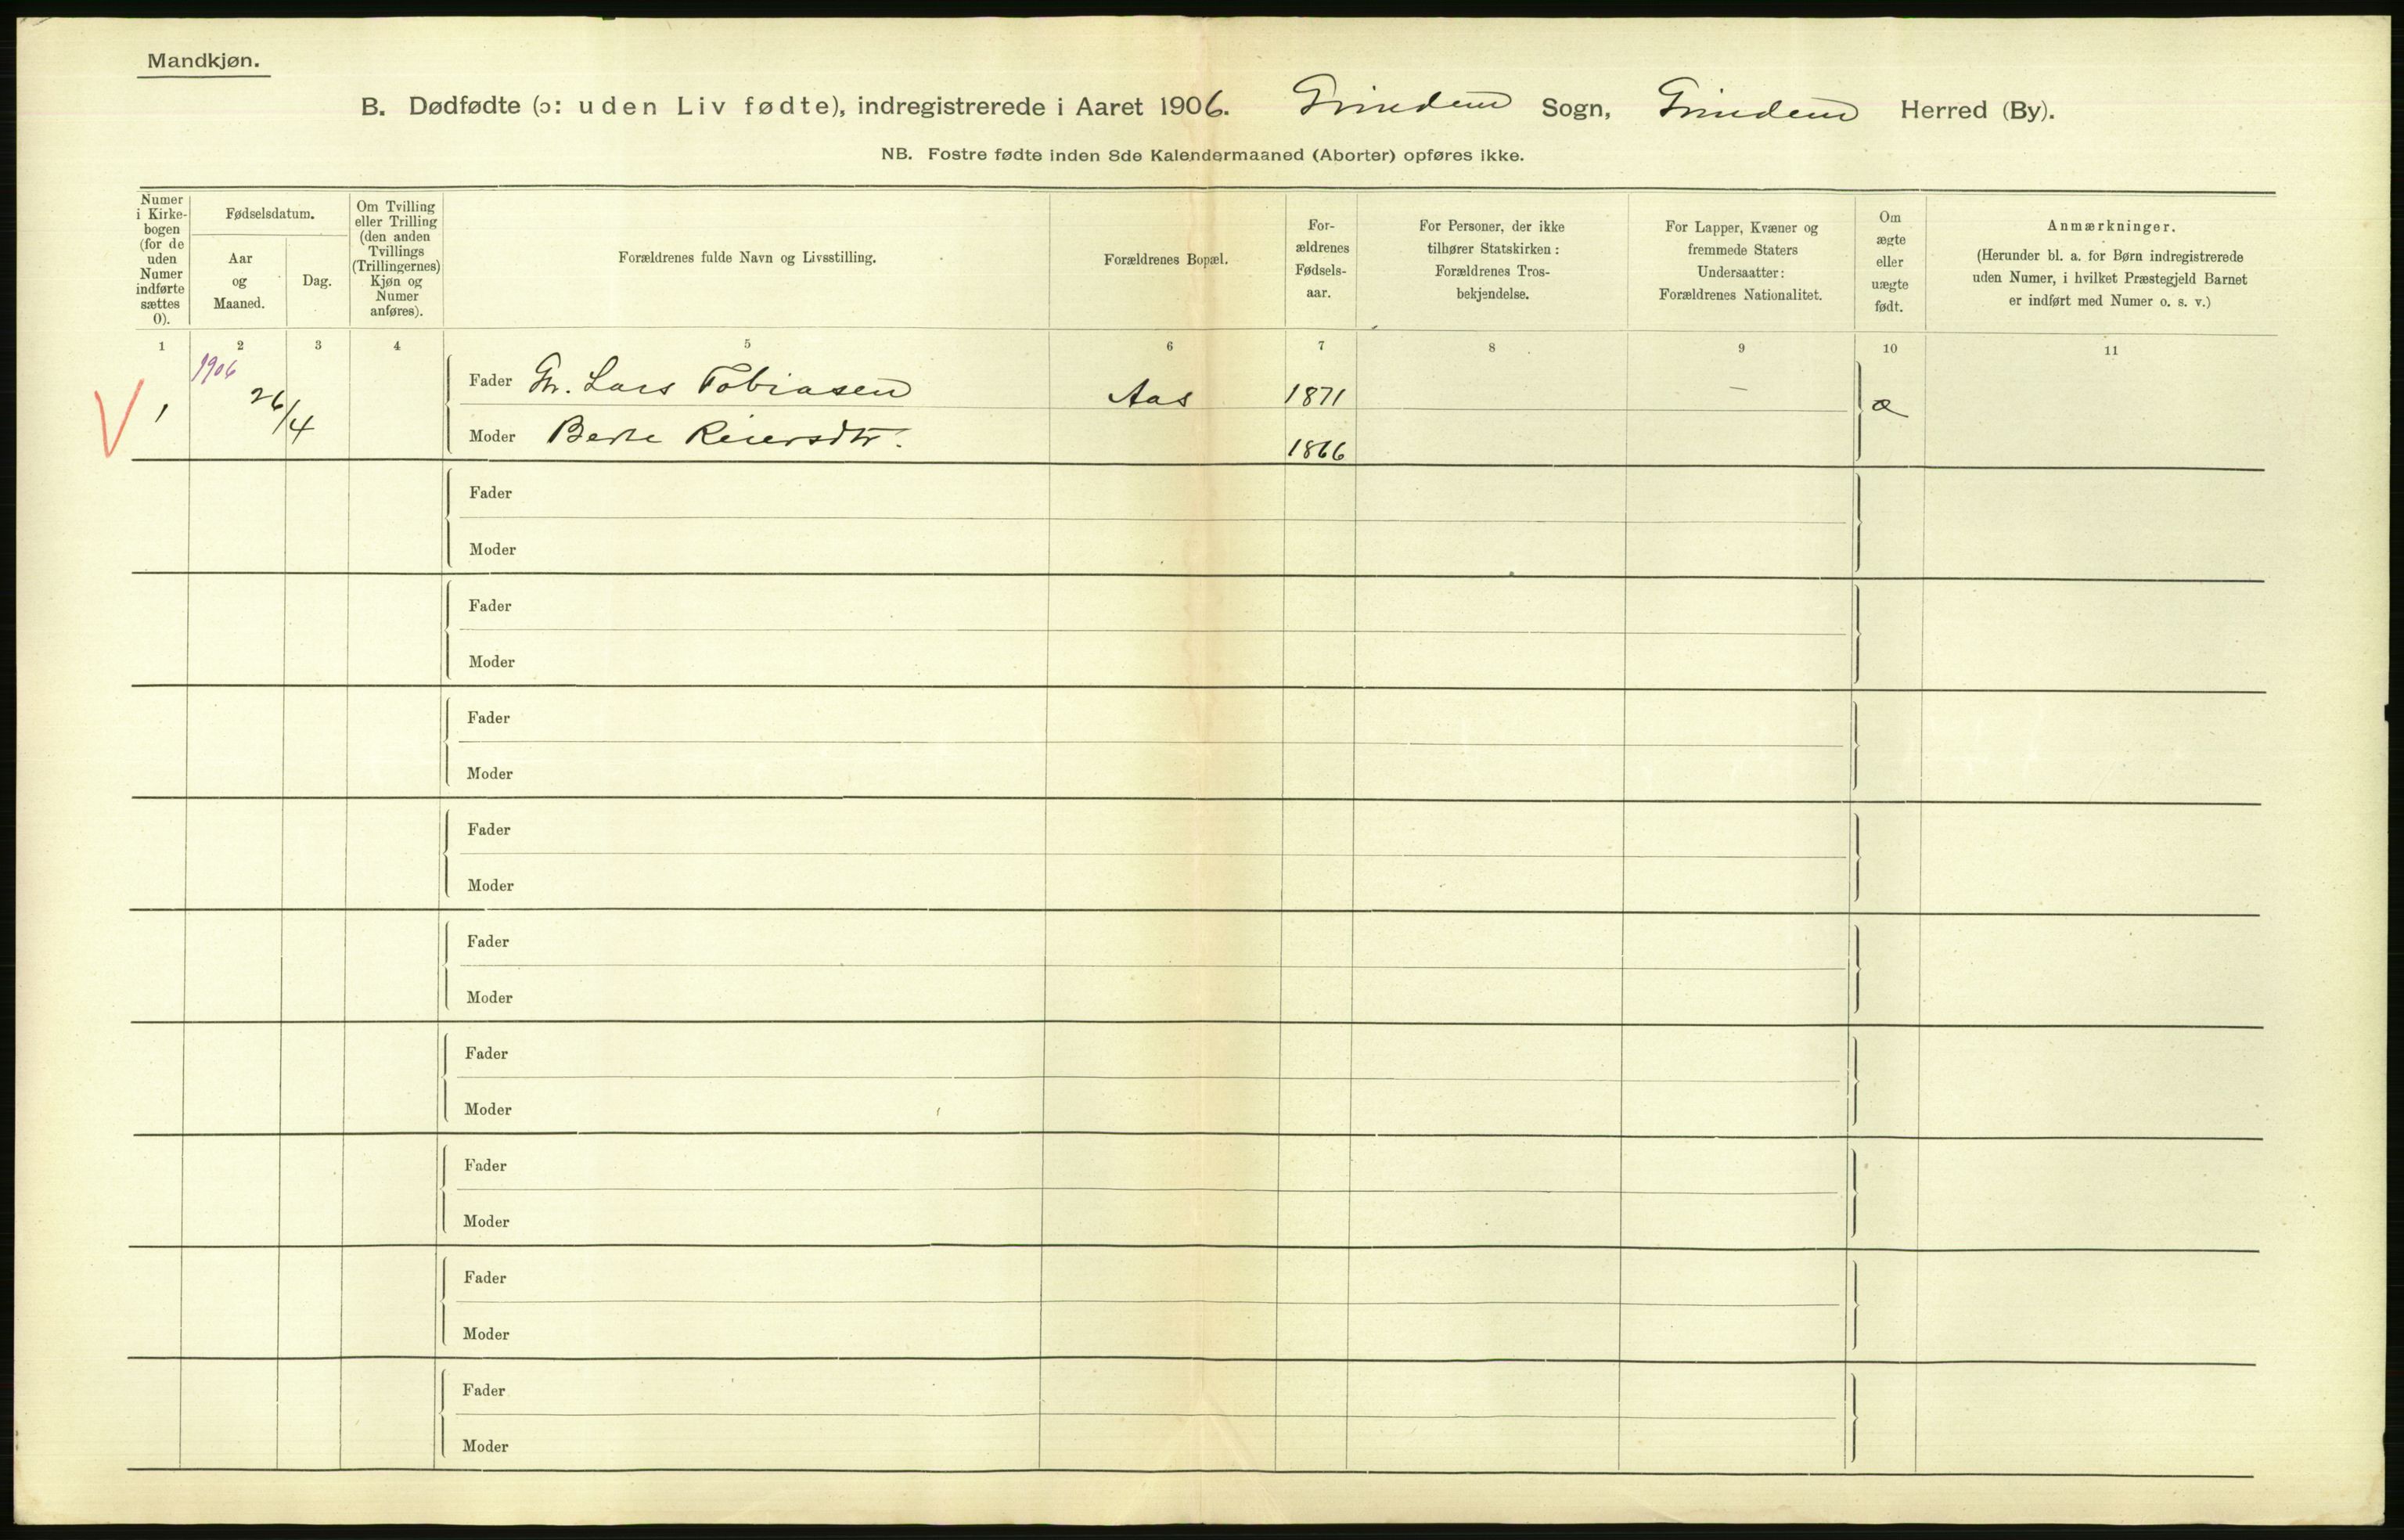 Mandkjøn.
B. Dødfødte (ɔ: uden Liv fødte), indregistrerede i Aaret 1906. Grindem Sogn, Grindem Herred (By).
NB. Fostre fødte inden 8de Kalendermaaned (Aborter) opføres ikke.
Numer i Kirkebogen (for de uden Numer indførte sættes 0).
Fødselsdatum.
Aar og Maaned.
Dag.
Om Tvilling eller Trilling (den anden Tvillings (Trillingernes) Kjøn og Numer anføres).
Forældrenes fulde Navn og Livsstilling.
Forældrenes Bopæl.
Forældrenes Fødselsaar.
For Personer, der ikke tilhører Statskirken: Forældrenes Trosbekjendelse.
For Lapper, Kvæner og fremmede Staters Undersaatter: Forældrenes Nationalitet.
Om ægte eller uægte født.
Anmærkninger.
(Herunder bl. a. for Børn indregistrerede uden Numer, i hvilket Præstegjeld Barnet er indført med Numer o. s. v.)
1 2 3 4 5 6 7 8 9 10 11
1906
1 26/4 Fader Gr. Lars Tobiasen Aas 1871 — æ
Moder Berte Reiersdtr. 1866
Fader
Moder
Fader
Moder
Fader
Moder
Fader
Moder
Fader
Moder
Fader
Moder
Fader
Moder
Fader
Moder
Fader
Moder